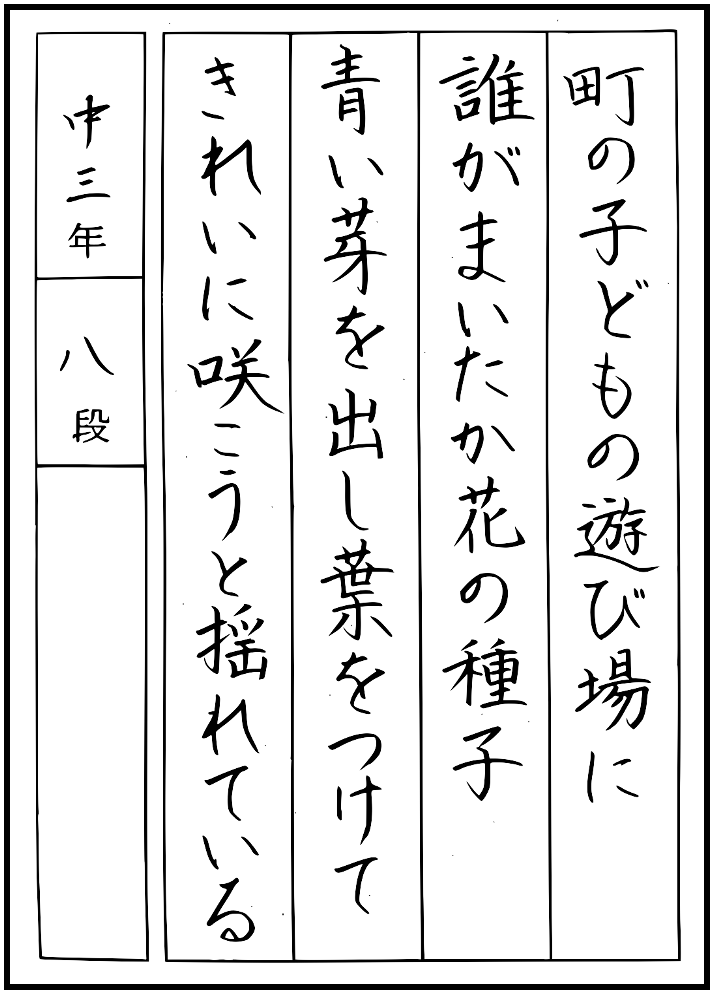 町の子どもの遊び場に
誰がまいたか花の種子
青い芽を出し葉をつけて
きれいに咲こうと揺れている
中三年
八段